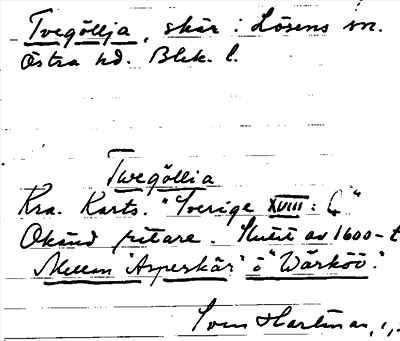 Tvegöllja, skär i Lösens sn.
Östra hd. Blek. l.
Twegöllia
Kra. Karts. "Sverige XVIII:
Okänd ritare. Slutet av 1600-t
Mellan "Asperskär" o "Wärköö".
Sven Hartman,